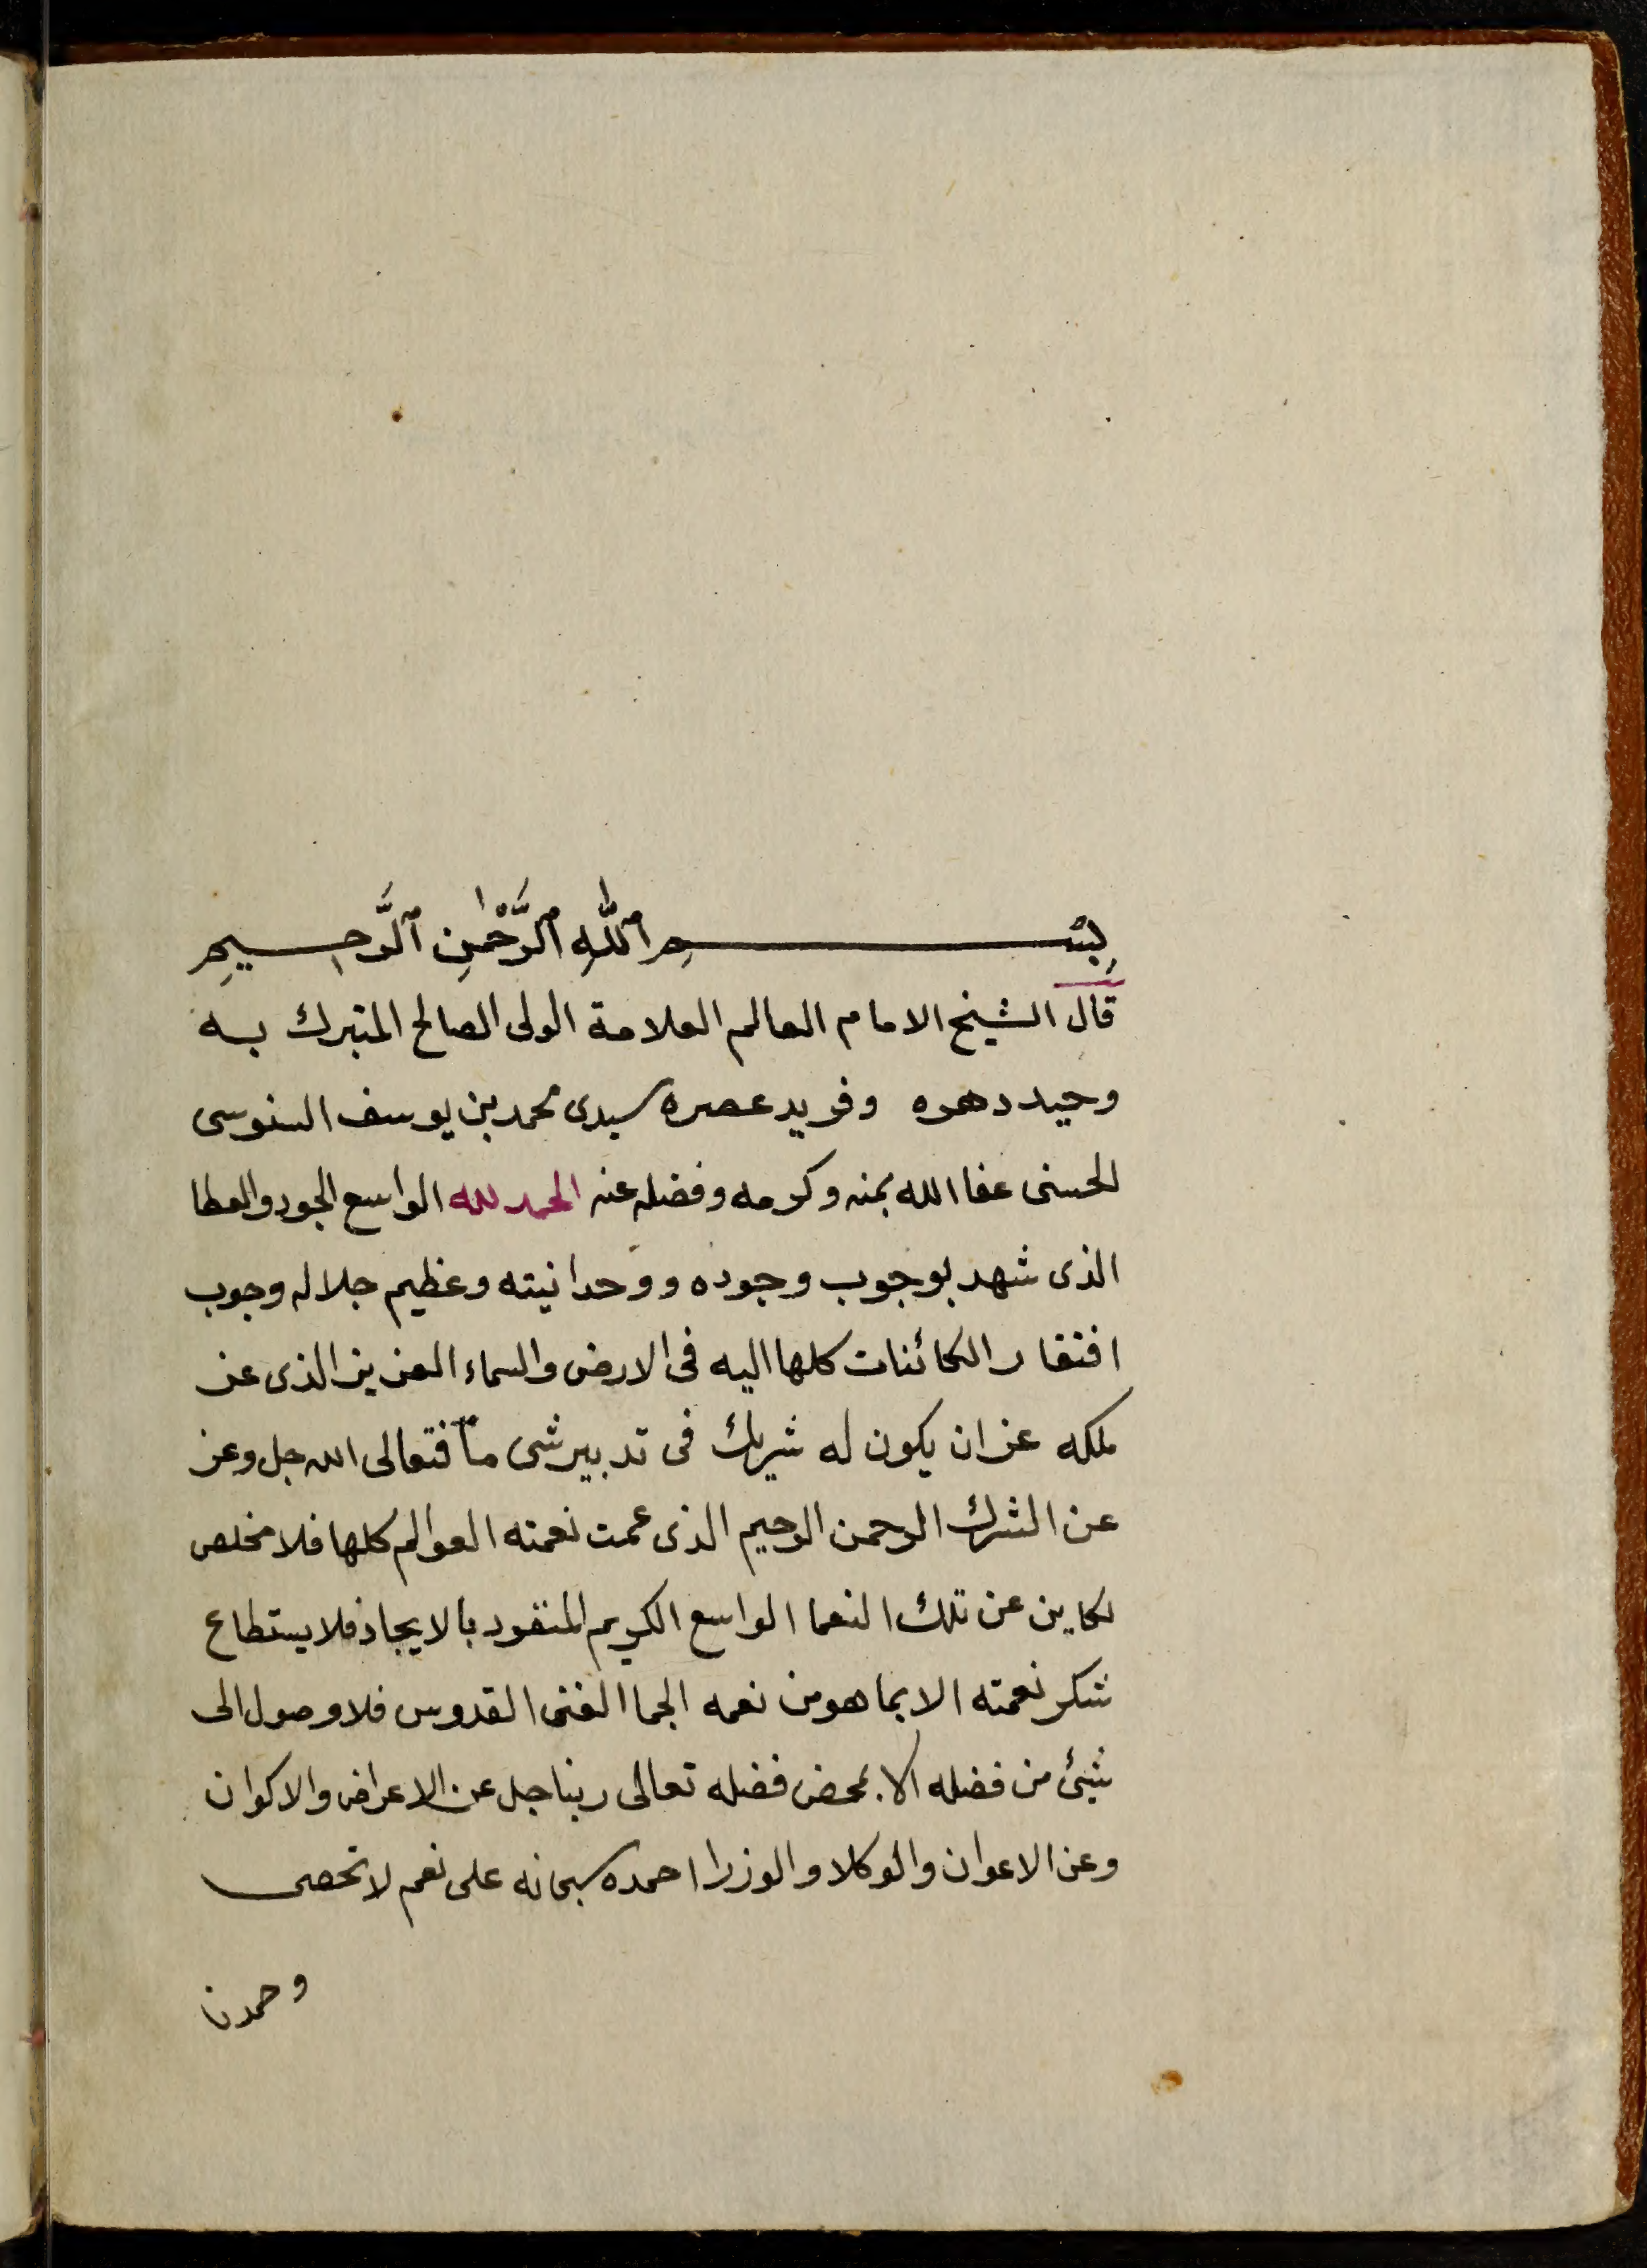 بِسْمِ اللّٰهِ الرَّحْمٰنِ الرَّحِيمِ
قال الشيخ الامام العالم العلامة الولى الصالح المتبرك به
وحيد دهره وفريد عصره سيدى محمد بن يوسف السنوسى
الحسنى عفا الله بمنه وكرمه وفضله عنه الحمد لله الواسع الجود والعطا
الذى شهد بوجوب وجوده ووحدانيته وعظيم جلاله وجوب
افتقار الكائنات كلها اليه فى الارض والسماء العزيز الذى عز
ملكه عن ان يكون له شريك فى تدبير شى ما فتعالى الله جل وعز
عن الشرك الرحمن الرحيم الذى عمت نعمته العوالم كلها فلا مخلص
لكاين عن تلك النعما الواسع الكريم المنفرد بالايجاد فلا يستطاع
شكر نعمته الا بما هو من نعمه الجما الغنى القدوس فلا وصول الى
شئ من فضله الا بمحض فضله تعالى ربنا جل عن الاعراض والاكوان
وعن الاعوان والوكلا والوزرا احمده سبحانه على نعم لا تحصى
وحمدنا